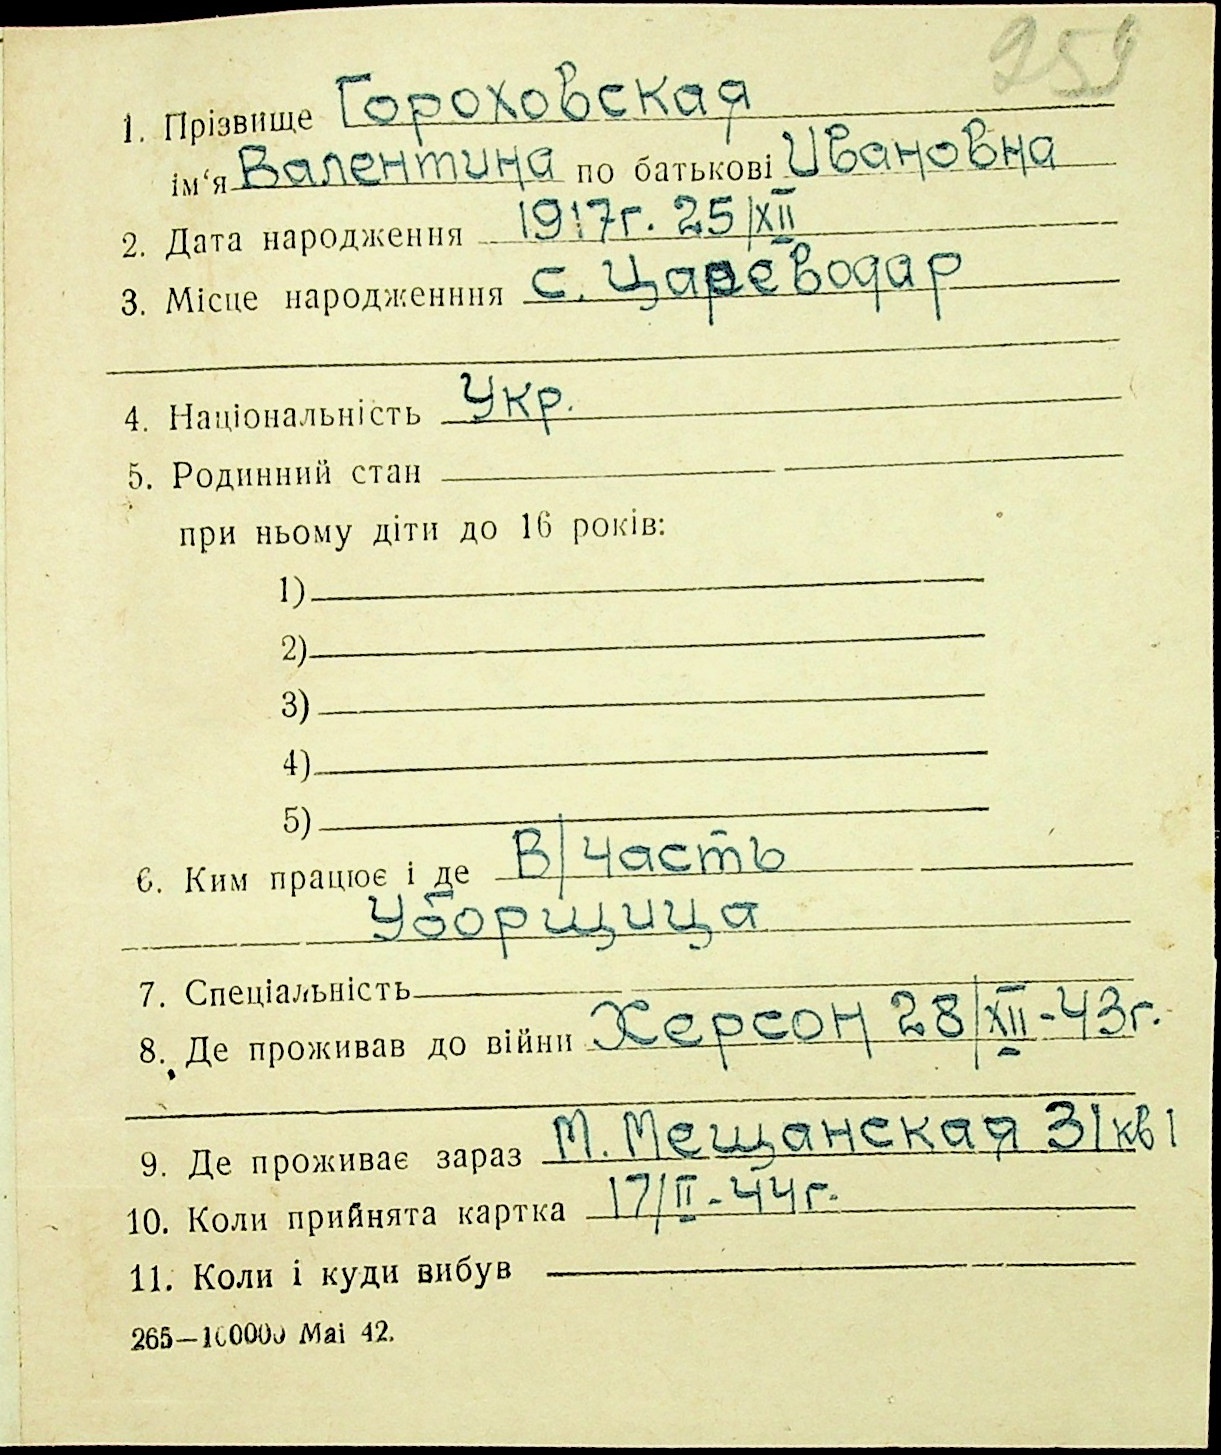 259
1. Прізвище Гороховская
ім‘я Валентина по батькові Ивановна
2. Дата народження 1917г. 25/XII
3. Місце народженння с. Царєводар
4. Національність Укр.
5. Родинний стан
при ньому діти до 16 років:
1)
2)
3)
4)
5)
6. Ким працює і де В/часть
Уборщица
7. Спеціальність
8. Де проживав до війни Херсон 28/XII-43г.
9. Де проживає зараз М. Мещанская 31 кв 1
10. Коли прийнята картка 17/II-44г.
11. Коли і куди вибув
265—100000 Mai 42.